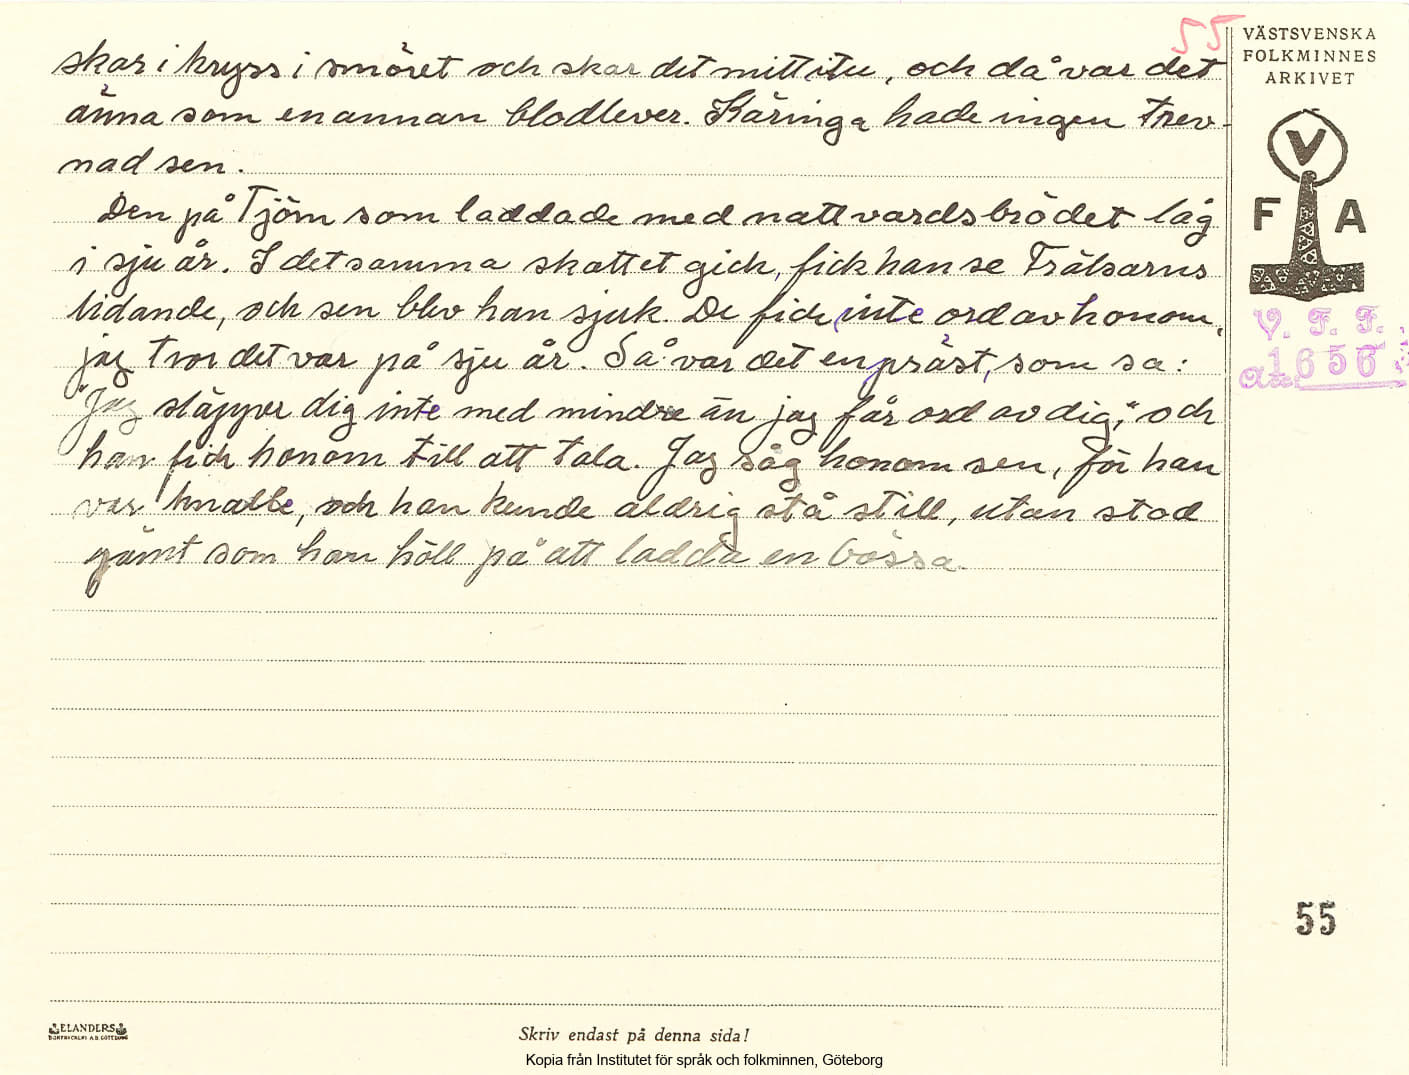 55
skar i kryss i smöret och skar det mitt itu, och då var det
änna som en annan blodlever. Käringa hade ingen trev-
nad sen.
Den på Tjörn som laddade med nattvardsbrödet låg
i sju år. I detsamma skottet gick, fick han se Frälsarns
lidande, och sen blev han sjuk. De fick inte ord av honom,
jag tror det var på sju år. Så var det en präst, som sa:
"Jag släpper dig inte med mindre än jag får ord av dig," och
han fick honom till att tala. Jag såg honom sen, för han
var knalle, och han kunde aldrig stå still, utan stod
jämt som han höll på att ladda en bössa.
VÄSTSVENSKA
FOLKMINNES
ARKIVET
V
F A
V. F. F.
1656
55
ELANDERS
BOKTRYCKERI A.B. GÖTEBORG
Skriv endast på denna sida!
Kopia från Institutet för språk och folkminnen, Göteborg